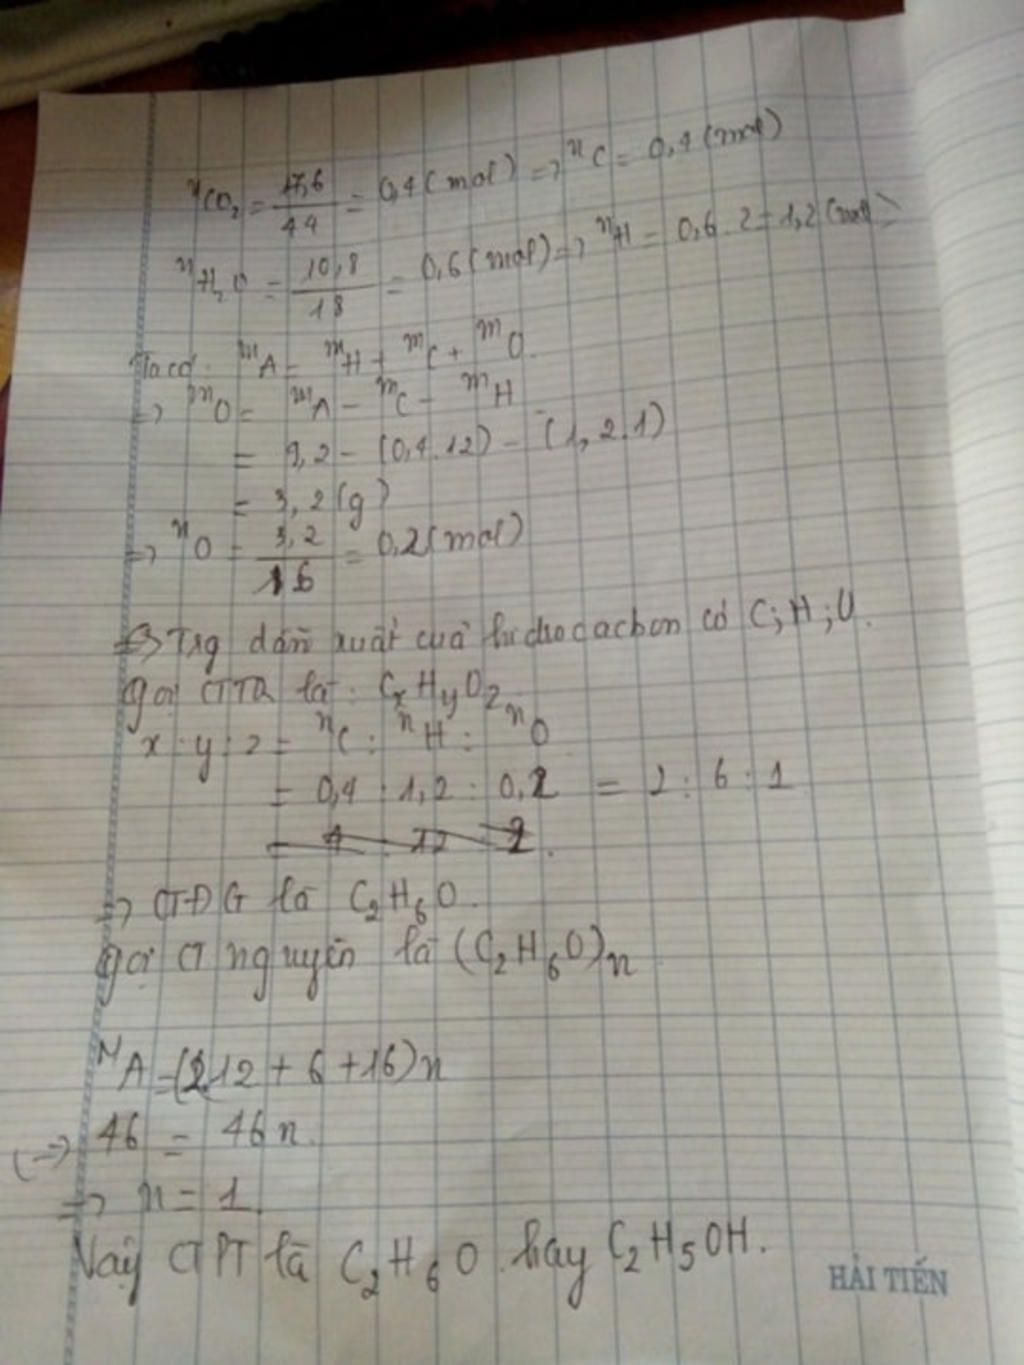 nCO₂ = 17,6/44 = 0,4 (mol) => nC = 0,4 (mol)
nH₂O = 10,8/18 = 0,6 (mol) => nH = 0,6 . 2 = 1,2 (mol)
Ta có: mA = mH + mC + mO
=> mO = mA - mC - mH
= 9,2 - (0,4.12) - (1,2.1)
= 3,2 (g)
=> nO = 3,2/16 = 0,2 (mol)
=> Trg dẫn xuất của hidrocacbon có C; H; O.
gọi CTTQ là: CxHyOz
x : y : z = nC : nH : nO
= 0,4 : 1,2 : 0,2 = 2 : 6 : 1
= 4 : 12 : 2
=> CTĐG là C₂H₆O.
gọi CT nguyên là (C₂H₆O)n
MA = (2.12 + 6 + 16)n
(=> 46 = 46n.
=> n = 1.
Vậy CTPT là C₂H₆O hay C₂H₅OH.
HẢI TIẾN